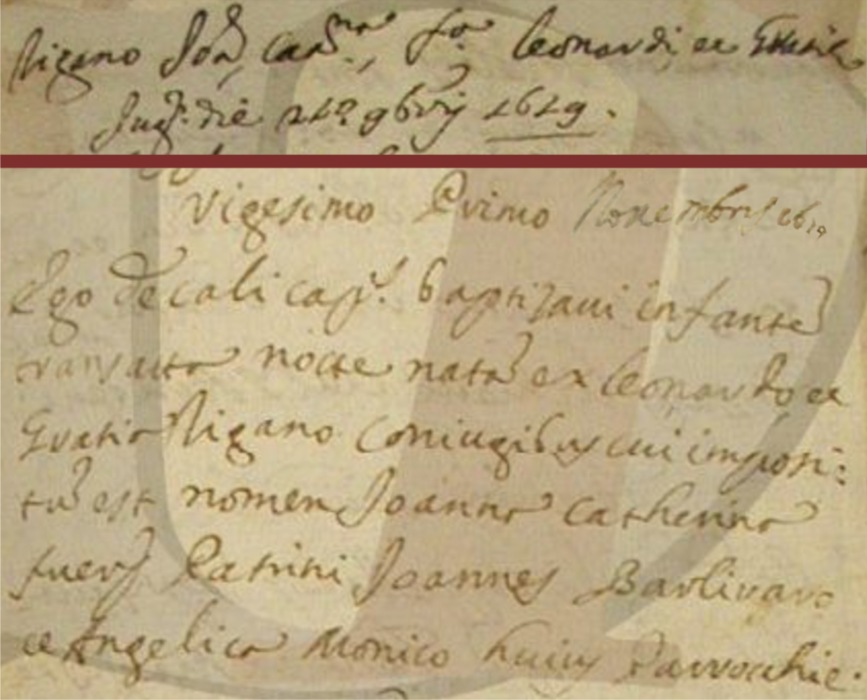 Rigano Joã, Catna, fa Leonardi et Gratie
Jug: die 21º 9brij 1619.
Vigesimo Primo Novembris 1619
Ego de cali cap. baptizavi infante
transacta nocte nata ex Leonardo et
Gratia Rigano Coniugibus cui imposi:
tũ est nomen Joanna Catherina
fuerũ Patrini Joannes Barlivaro
et Angelica Monico huius Parrochie: